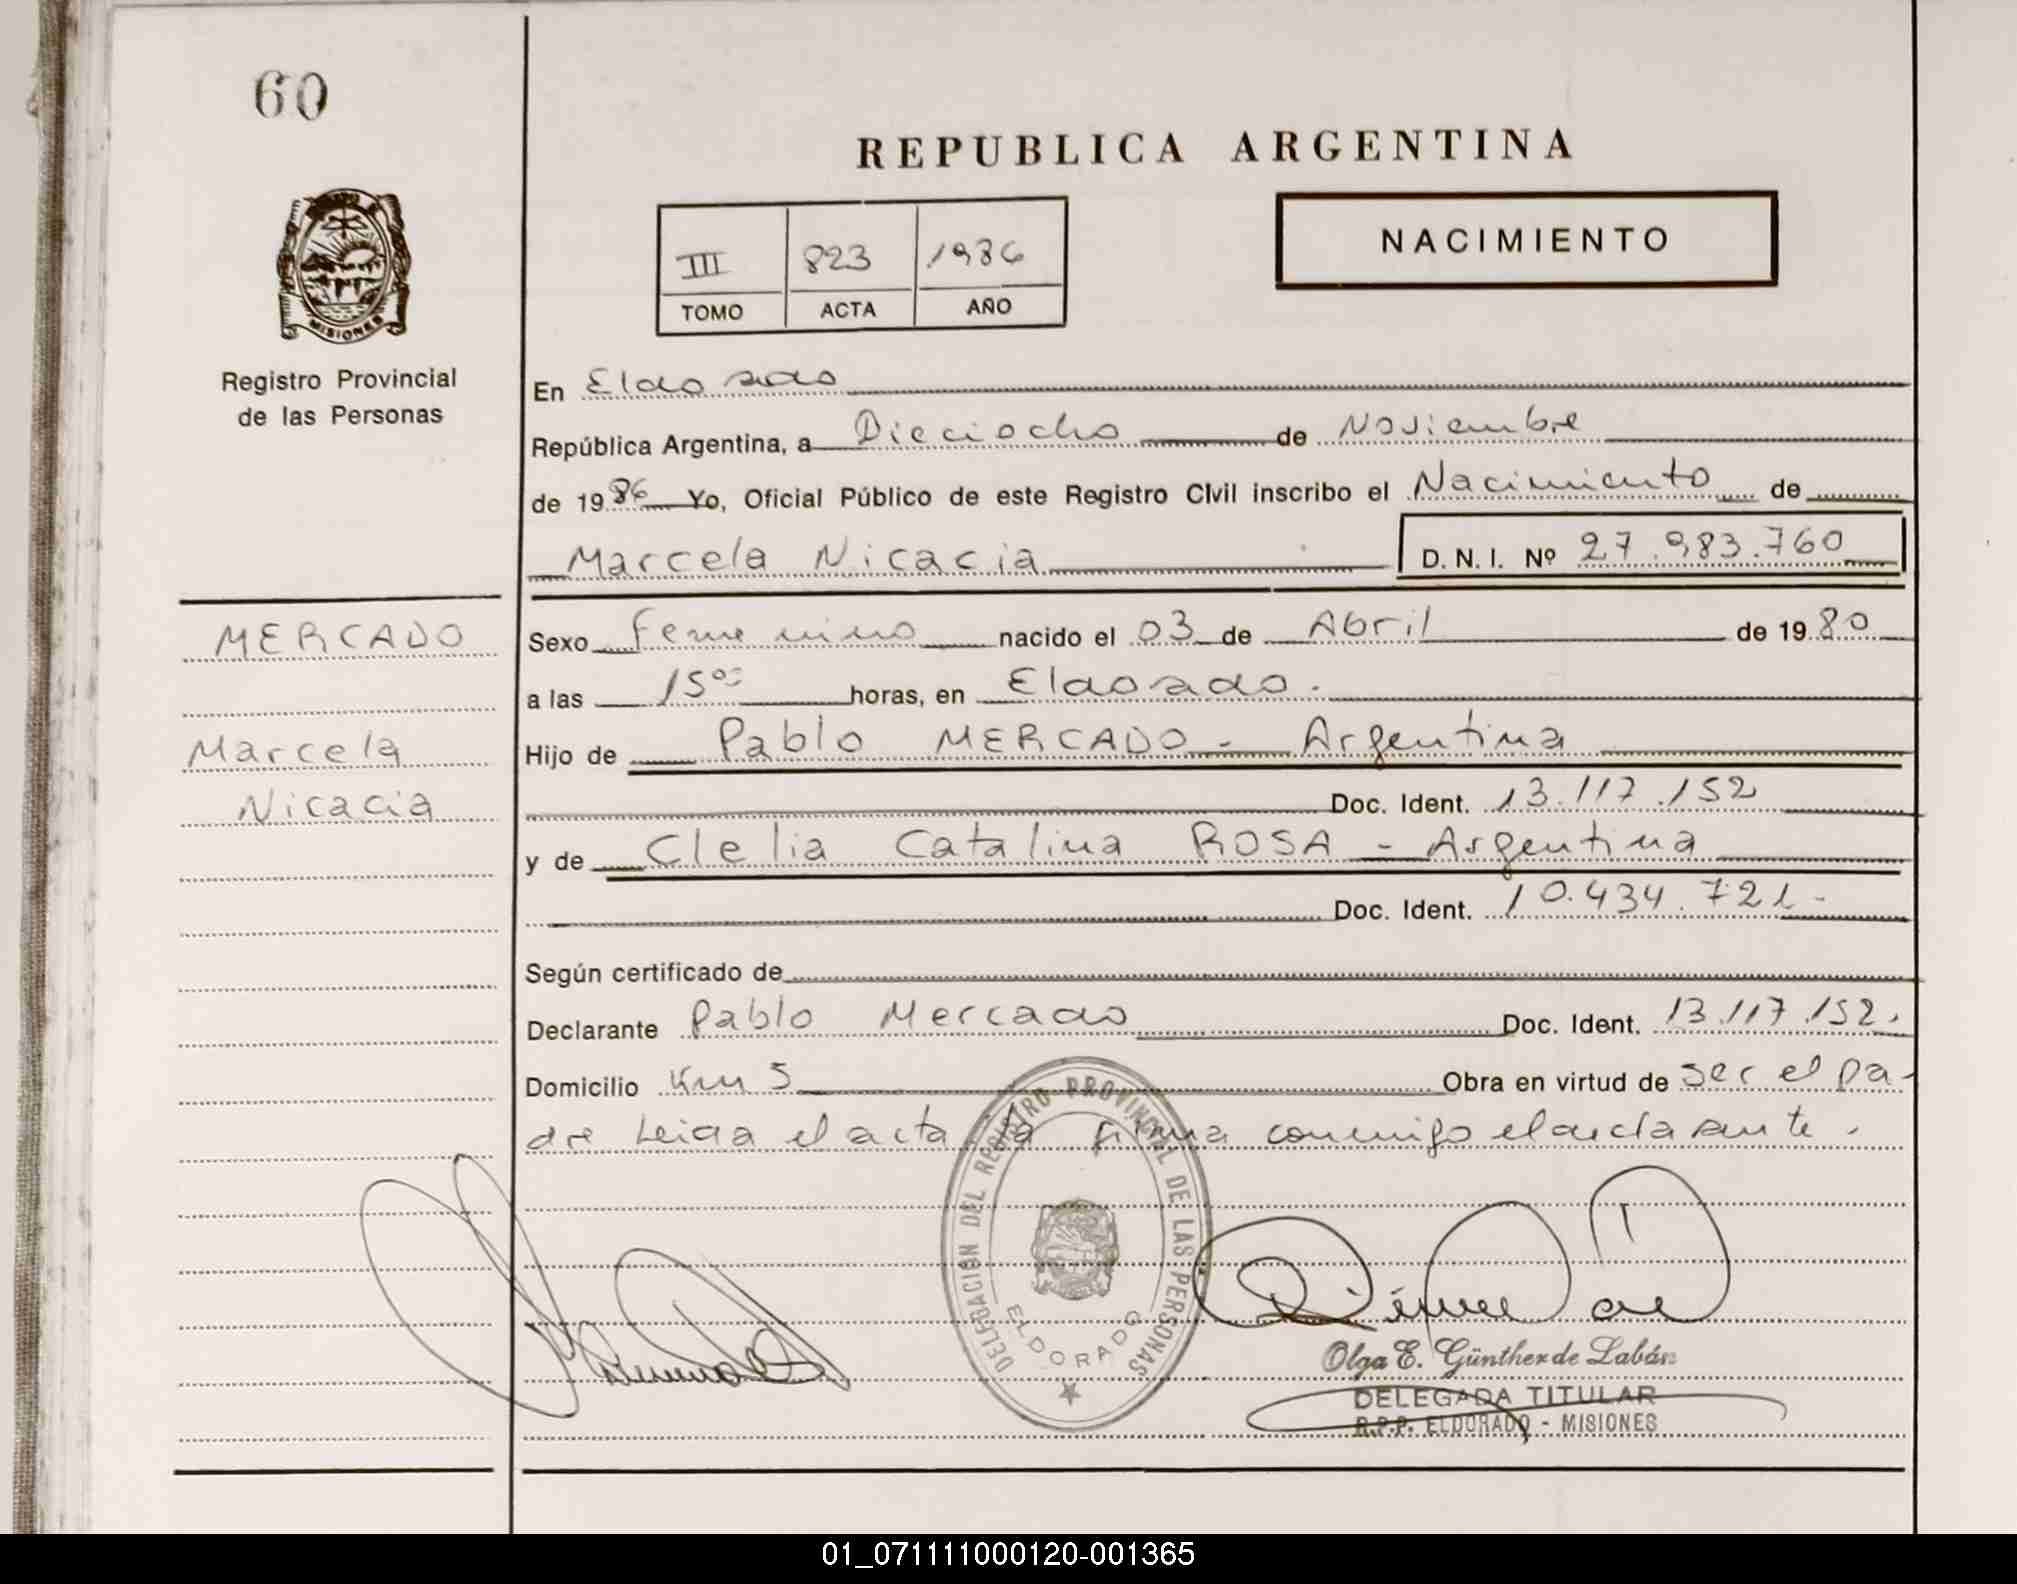 60
REPUBLICA ARGENTINA
NACIMIENTO
III 823 1986
TOMO ACTA AÑO
MISIONES
Registro Provincial
de las Personas
En Eldorado
República Argentina, a Dieciocho de Noviembre
de 1986 Yo, Oficial Público de este Registro Civil inscribo el Nacimiento de
Marcela Nicacia D. N. I. Nº 27.983.760
MERCADO
Marcela
Nicacia
Sexo Femenino nacido el 03 de Abril de 1980
a las 15⁰⁰ horas, en Eldorado.
Hijo de Pablo MERCADO - Argentina
Doc. Ident. 13.117.152
y de Clelia Catalina ROSA - Argentina
Doc. Ident. 10.434.721-
Según certificado de
Declarante Pablo Mercado Doc. Ident. 13.117.152.
Domicilio Km 5 Obra en virtud de ser el pa-
dre Leida el acta la firma conmigo el declarante.
DELEGACION DEL REGISTRO PROVINCIAL DE LAS PERSONAS
ELDORADO
Olga E. Günther de Labán
DELEGADA TITULAR
R.P.P. ELDORADO - MISIONES
01_071111000120-001365